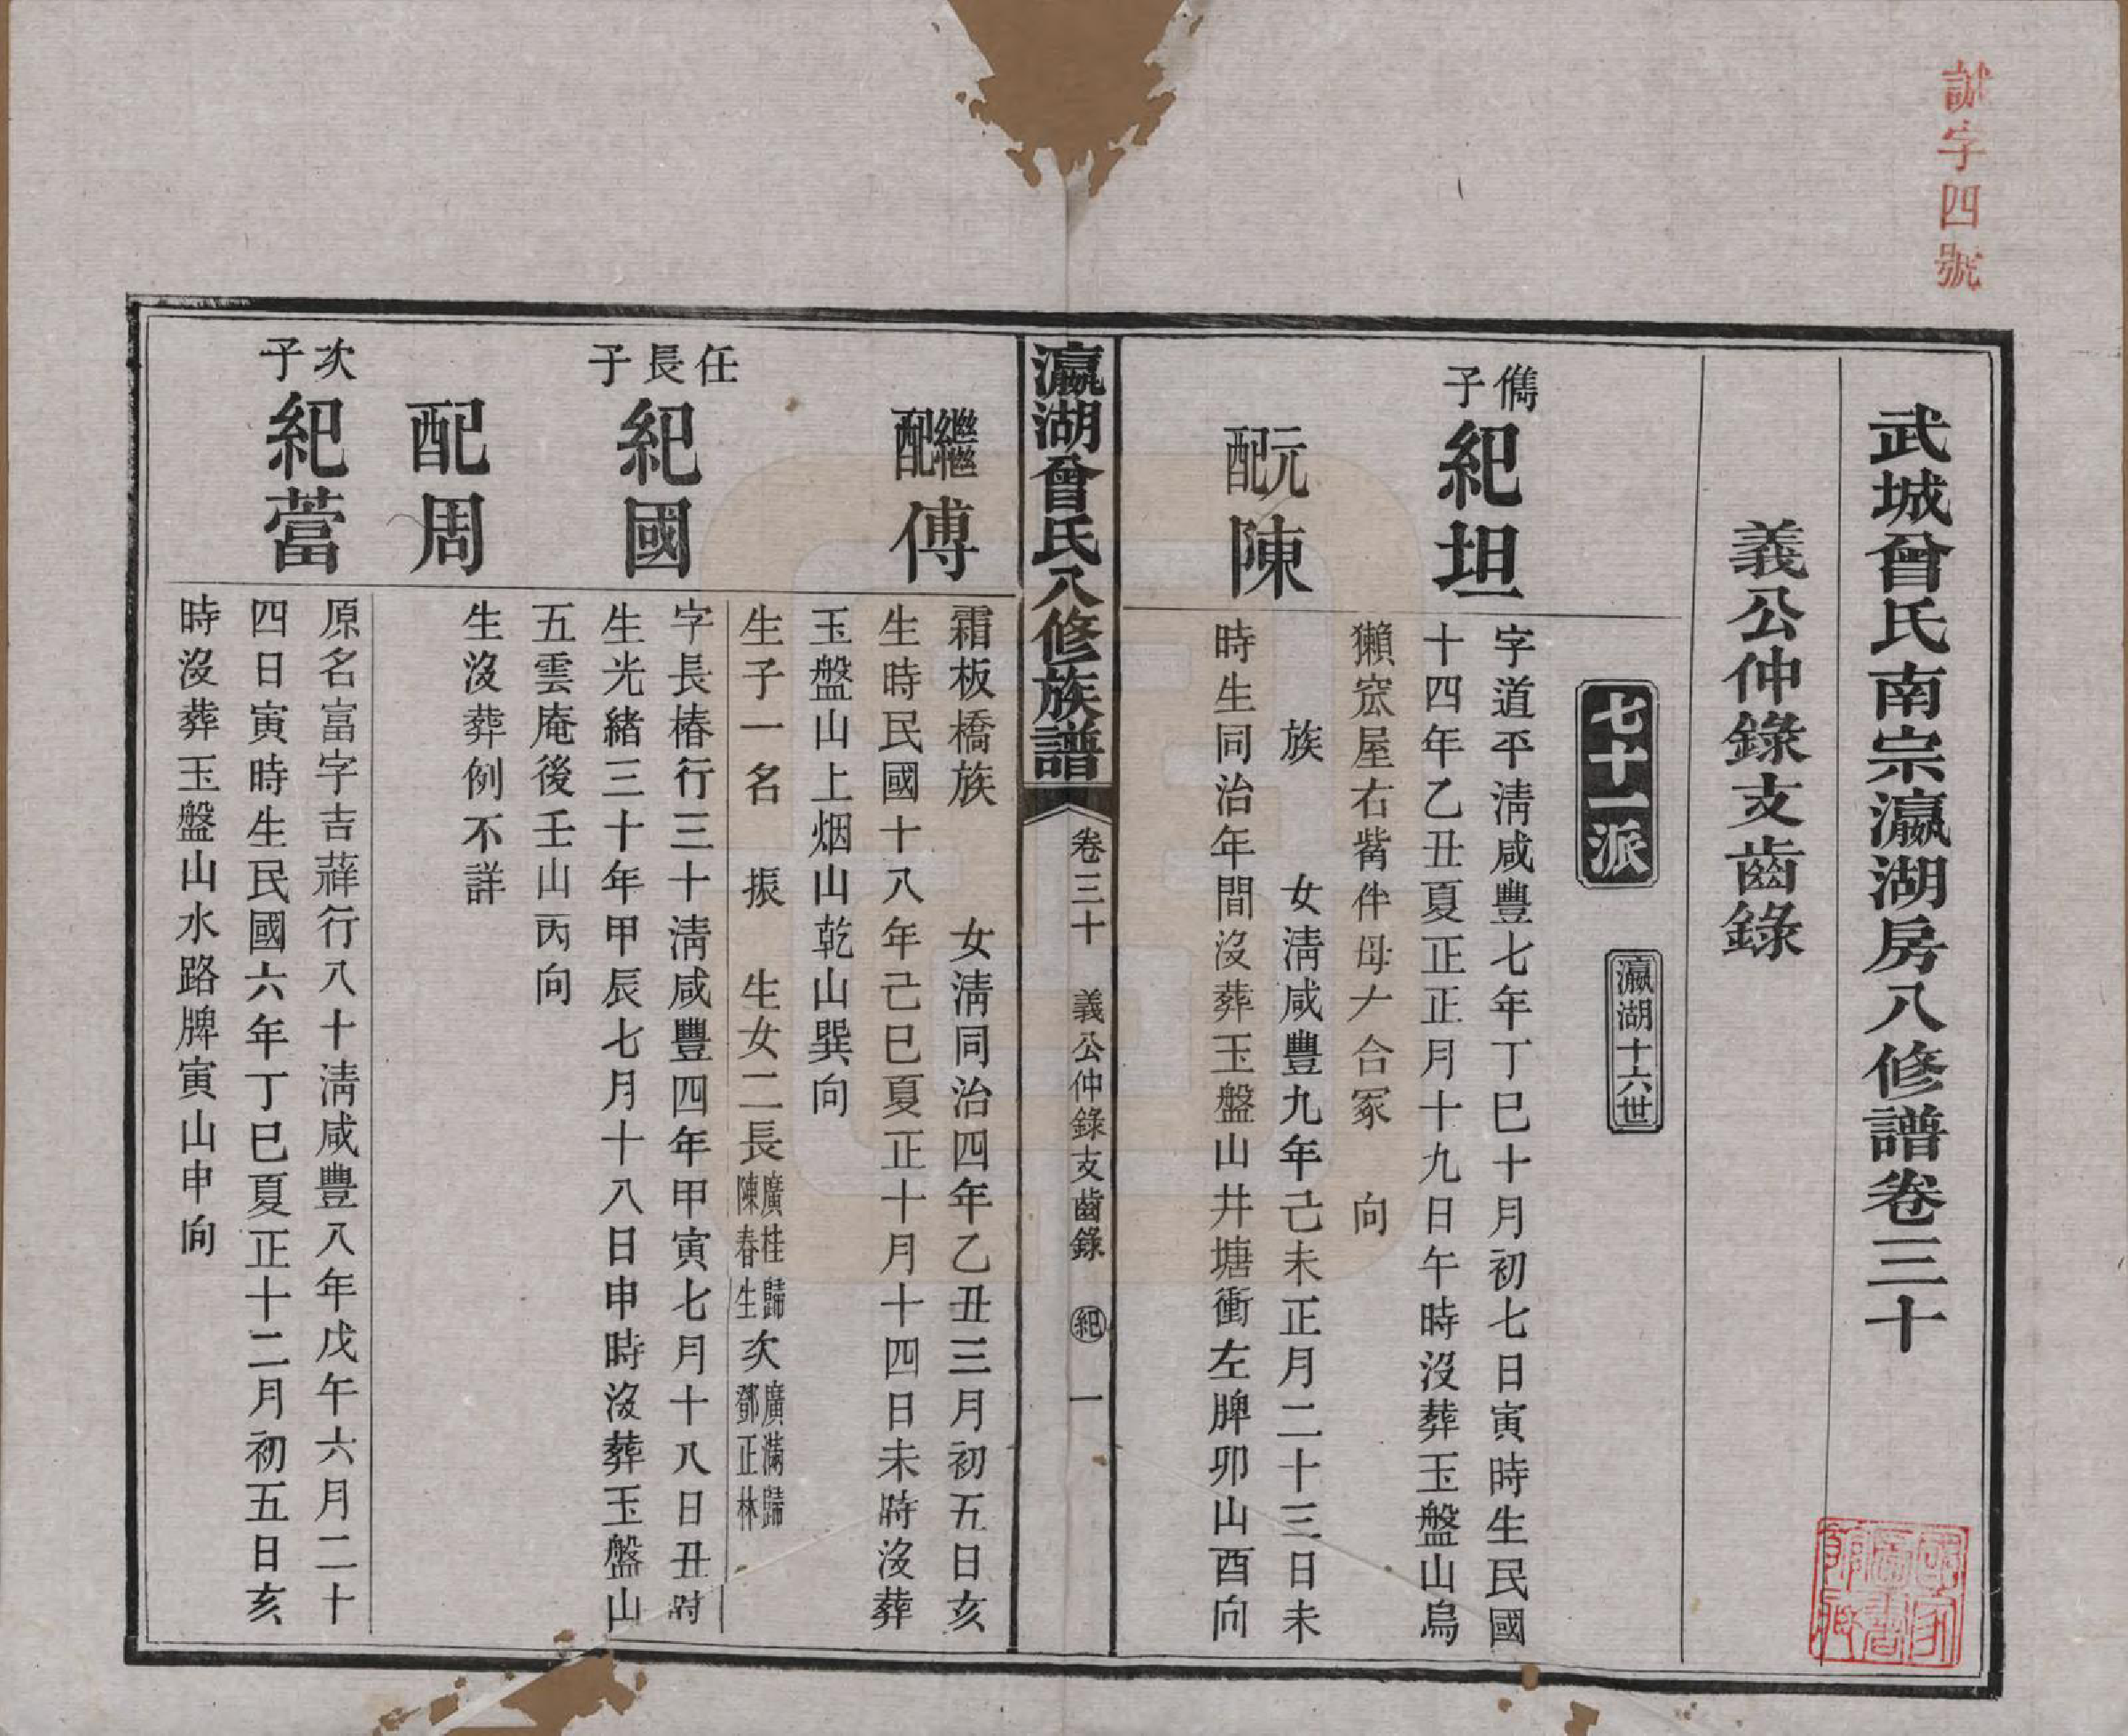 誠字四號
武城曾氏南宗瀛湖房八修譜卷三十
義公仲錄支齒錄
七十一派
瀛湖十六世
儁子
紀坦
字道平淸咸豐七年丁巳十月初七日寅時生民國
十四年乙丑夏正正月十九日午時沒葬玉盤山烏
獺窊屋右觜伴母亽合冢 向
元配
陳
族 女淸咸豐九年己未正月二十三日未
時生同治年間沒葬玉盤山井塘衝左脾卯山酉向
瀛湖曾氏八修族譜
卷三十 義公仲錄支齒錄 紀 一
繼配
傅
霜板橋族 女淸同治四年乙丑三月初五日亥
生時民國十八年己巳夏正十月十四日未時沒葬
玉盤山上烟山乾山巽向
生子一名 振 生女二長廣桂歸陳春生次廣滿歸鄧正林
任長子
紀國
字長椿行三十淸咸豐四年甲寅七月十八日丑時
生光緒三十年甲辰七月十八日申時沒葬玉盤山
五雲庵後壬山丙向
配周
生沒葬例不詳
次子
紀蕾
原名富字吉薛行八十淸咸豐八年戊午六月二十
四日寅時生民國六年丁巳夏正十二月初五日亥
時沒葬玉盤山水路牌寅山申向